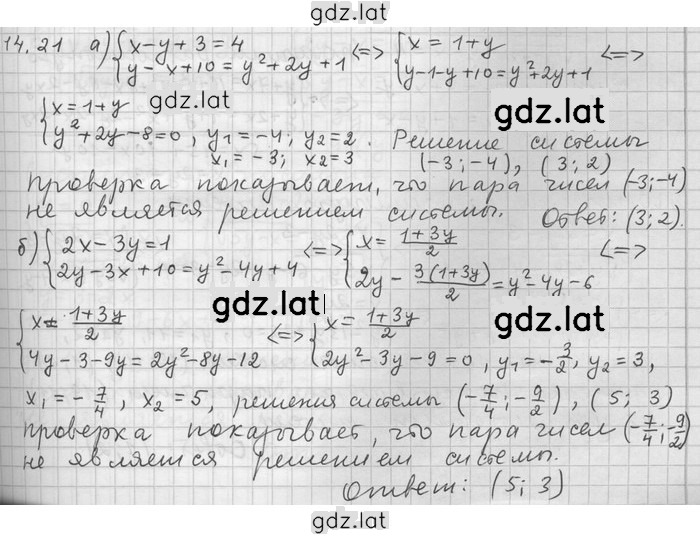 gdz.lat
14.21 а) { x-y+3=4 <=> { x=1+y <=>
y-x+10=y²+2y+1 y-1-y+10=y²+2y+1
gdz.lat gdz.lat
{ x=1+y
y²+2y-8=0, y₁=-4; y₂=2. Решение системы
x₁=-3; x₂=3 (-3;-4), (3;2)
Проверка показывает, что пара чисел (-3;-4)
не является решением системы. Ответ: (3;2).
б) { 2x-3y=1 <=> { x=(1+3y)/2 <=>
2y-3x+10=y²-4y+4 2y-3(1+3y)/2=y²-4y-6
gdz.lat gdz.lat
{ x=(1+3y)/2 <=> { x=(1+3y)/2
4y-3-9y=2y²-8y-12 2y²-3y-9=0, y₁=-3/2, y₂=3,
x₁=-7/4, x₂=5, решения системы (-7/4;-9/2), (5; 3)
Проверка показывает, что пара чисел (-7/4;-9/2)
не является решением системы.
Ответ: (5; 3)
gdz.lat